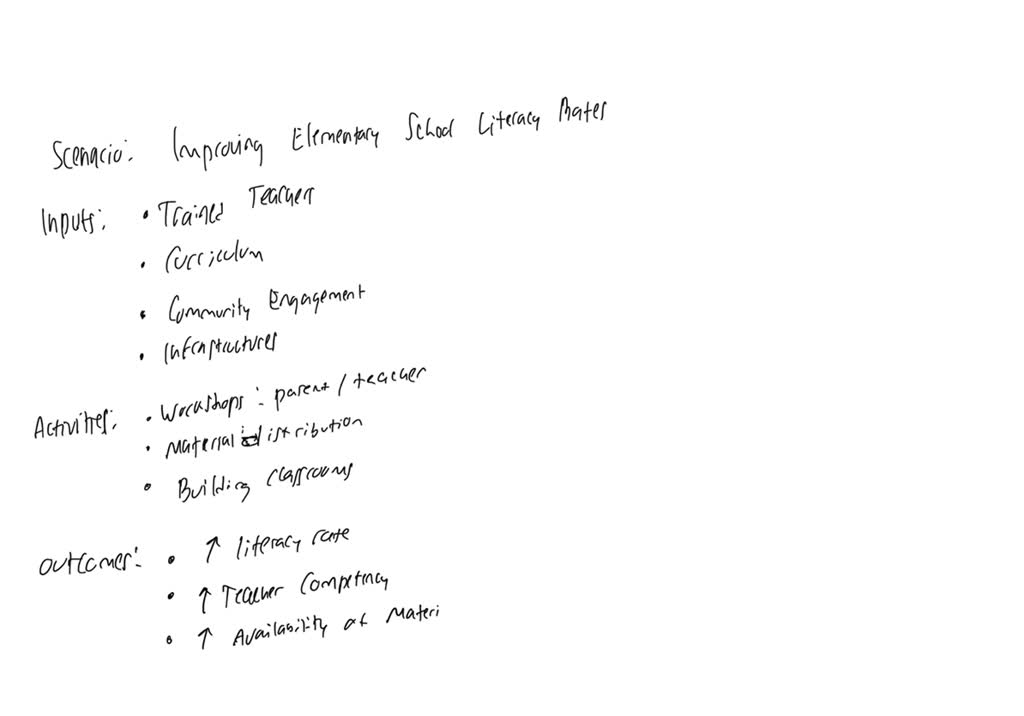 Scenario: Improving Elementary School Literacy Rates
Inputs: • Trained Teachers
• Curriculum
• Community Engagement
• Infrastructures
Activities: • Workshops: parent / teacher
• Material distribution
• Building classrooms
Outcomes: • ↑ literacy rate
• ↑ Teacher Competency
• ↑ Availability of Materi